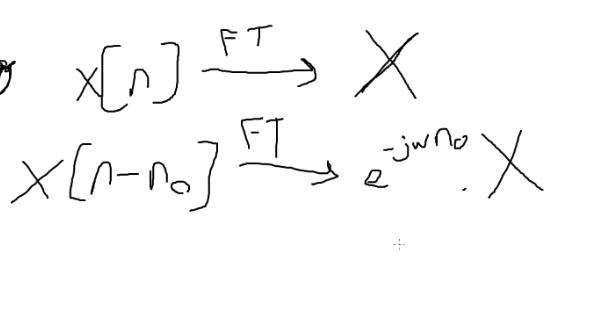 x[n] FT → X
x[n-n₀] FT → e^-jwn₀ . X